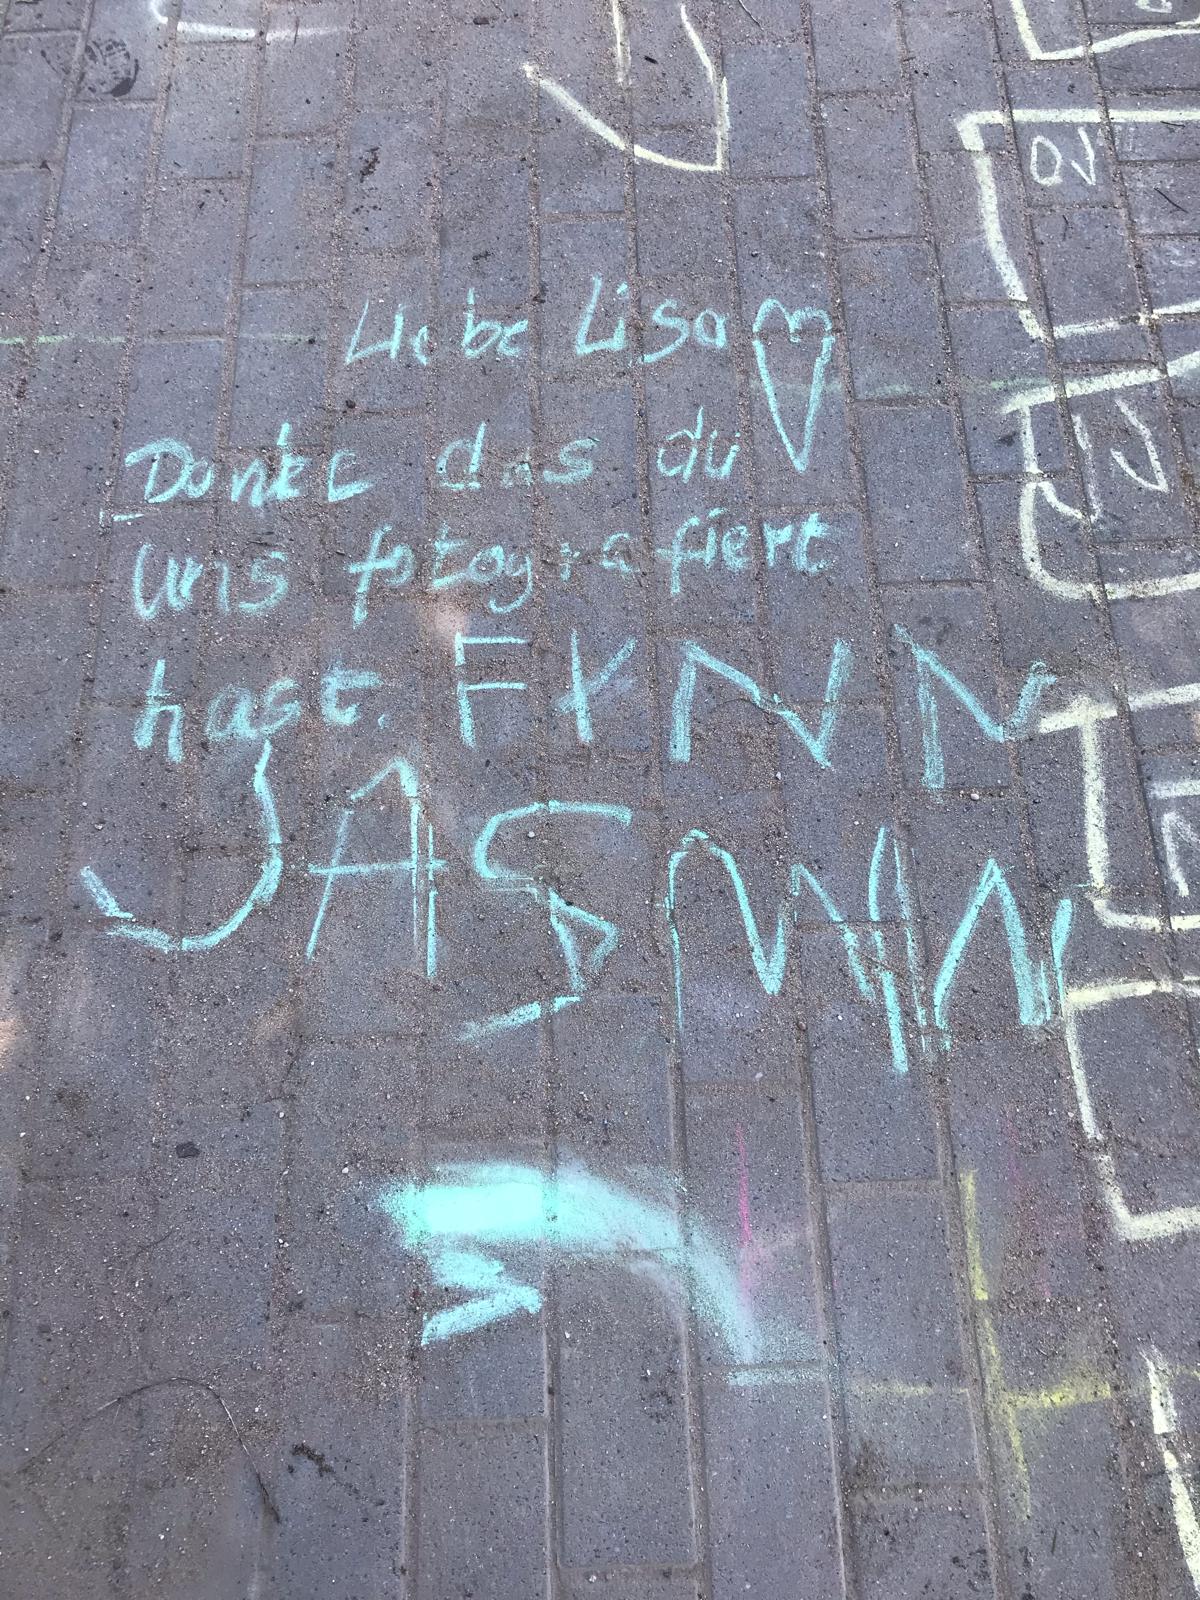 Liebe Lisa
Danke das du
uns fotografiert
hast. FYNN
JASMIN